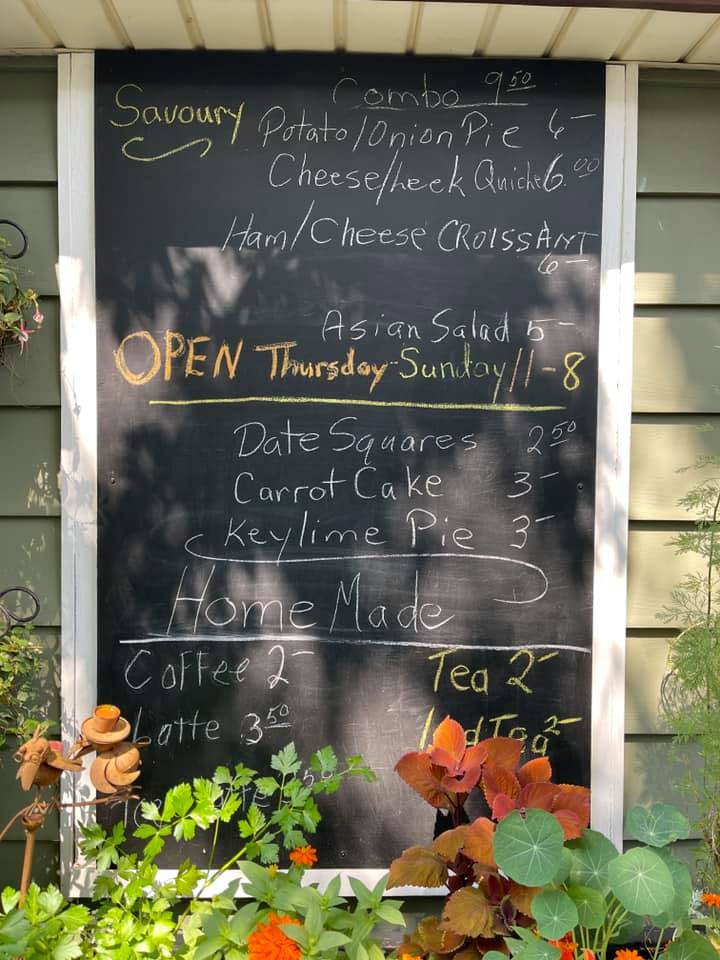 Combo 9 50
Savoury
Potato/Onion Pie 6-
Cheese/Leek Quiche 6.00
Ham/Cheese CROISSANT
6-
Asian Salad 5-
OPEN Thursday-Sunday 11-8
Date Squares 2 50
Carrot Cake 3-
Keylime Pie 3-
Home Made
Coffee 2- Tea 2-
Latte 3 50 Tea 2-